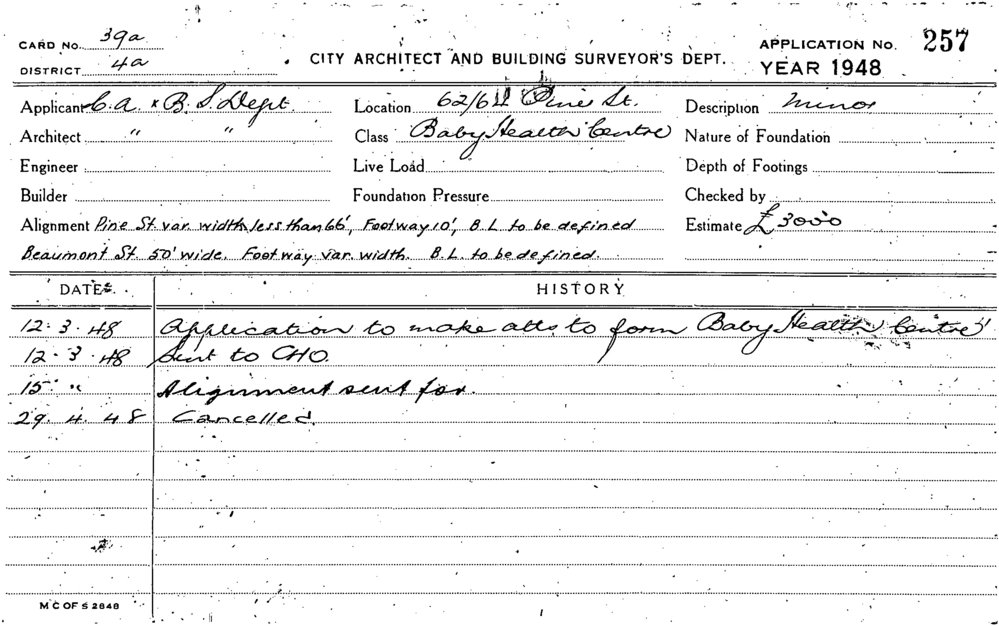 CARD No. 39a
DISTRICT 4a
CITY ARCHITECT AND BUILDING SURVEYOR'S DEPT.
APPLICATION No. 257
YEAR 1948
Applicant C.A. & B.S. Dept. Location 62/64 Pine St. Description Minor
Architect " " Class Baby Health Centre Nature of Foundation
Engineer Live Load Depth of Footings
Builder Foundation Pressure Checked by
Alignment Pine St. var. width, less than 66', Footway 10', B.L. to be defined Estimate £3000
Beaumont St. 50' wide. Footway var. width. B.L. to be defined.
DATES. HISTORY
12.3.48 Application to make alts to form Baby Health Centre
12.3.48 Sent to CHO.
15 " Alignment sent for.
29.4.48 Cancelled.
M C OF S 2848